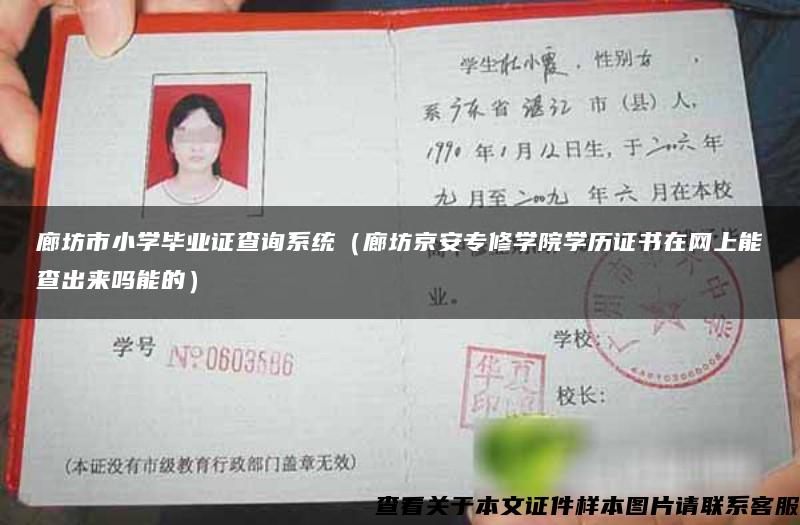 学生杜小霞，性别女，
系广东省湛江市（县）人，
1990年1月12日生，于二00六年
九月至二00九年六月在本校
廊坊市小学毕业证查询系统（廊坊京安专修学院学历证书在网上能
查出来吗能的）
业。
学号 №0603586
学校：
华夏
印
校长：
(本证没有市级教育行政部门盖章无效)
查看关于本文证件样本图片请联系客服